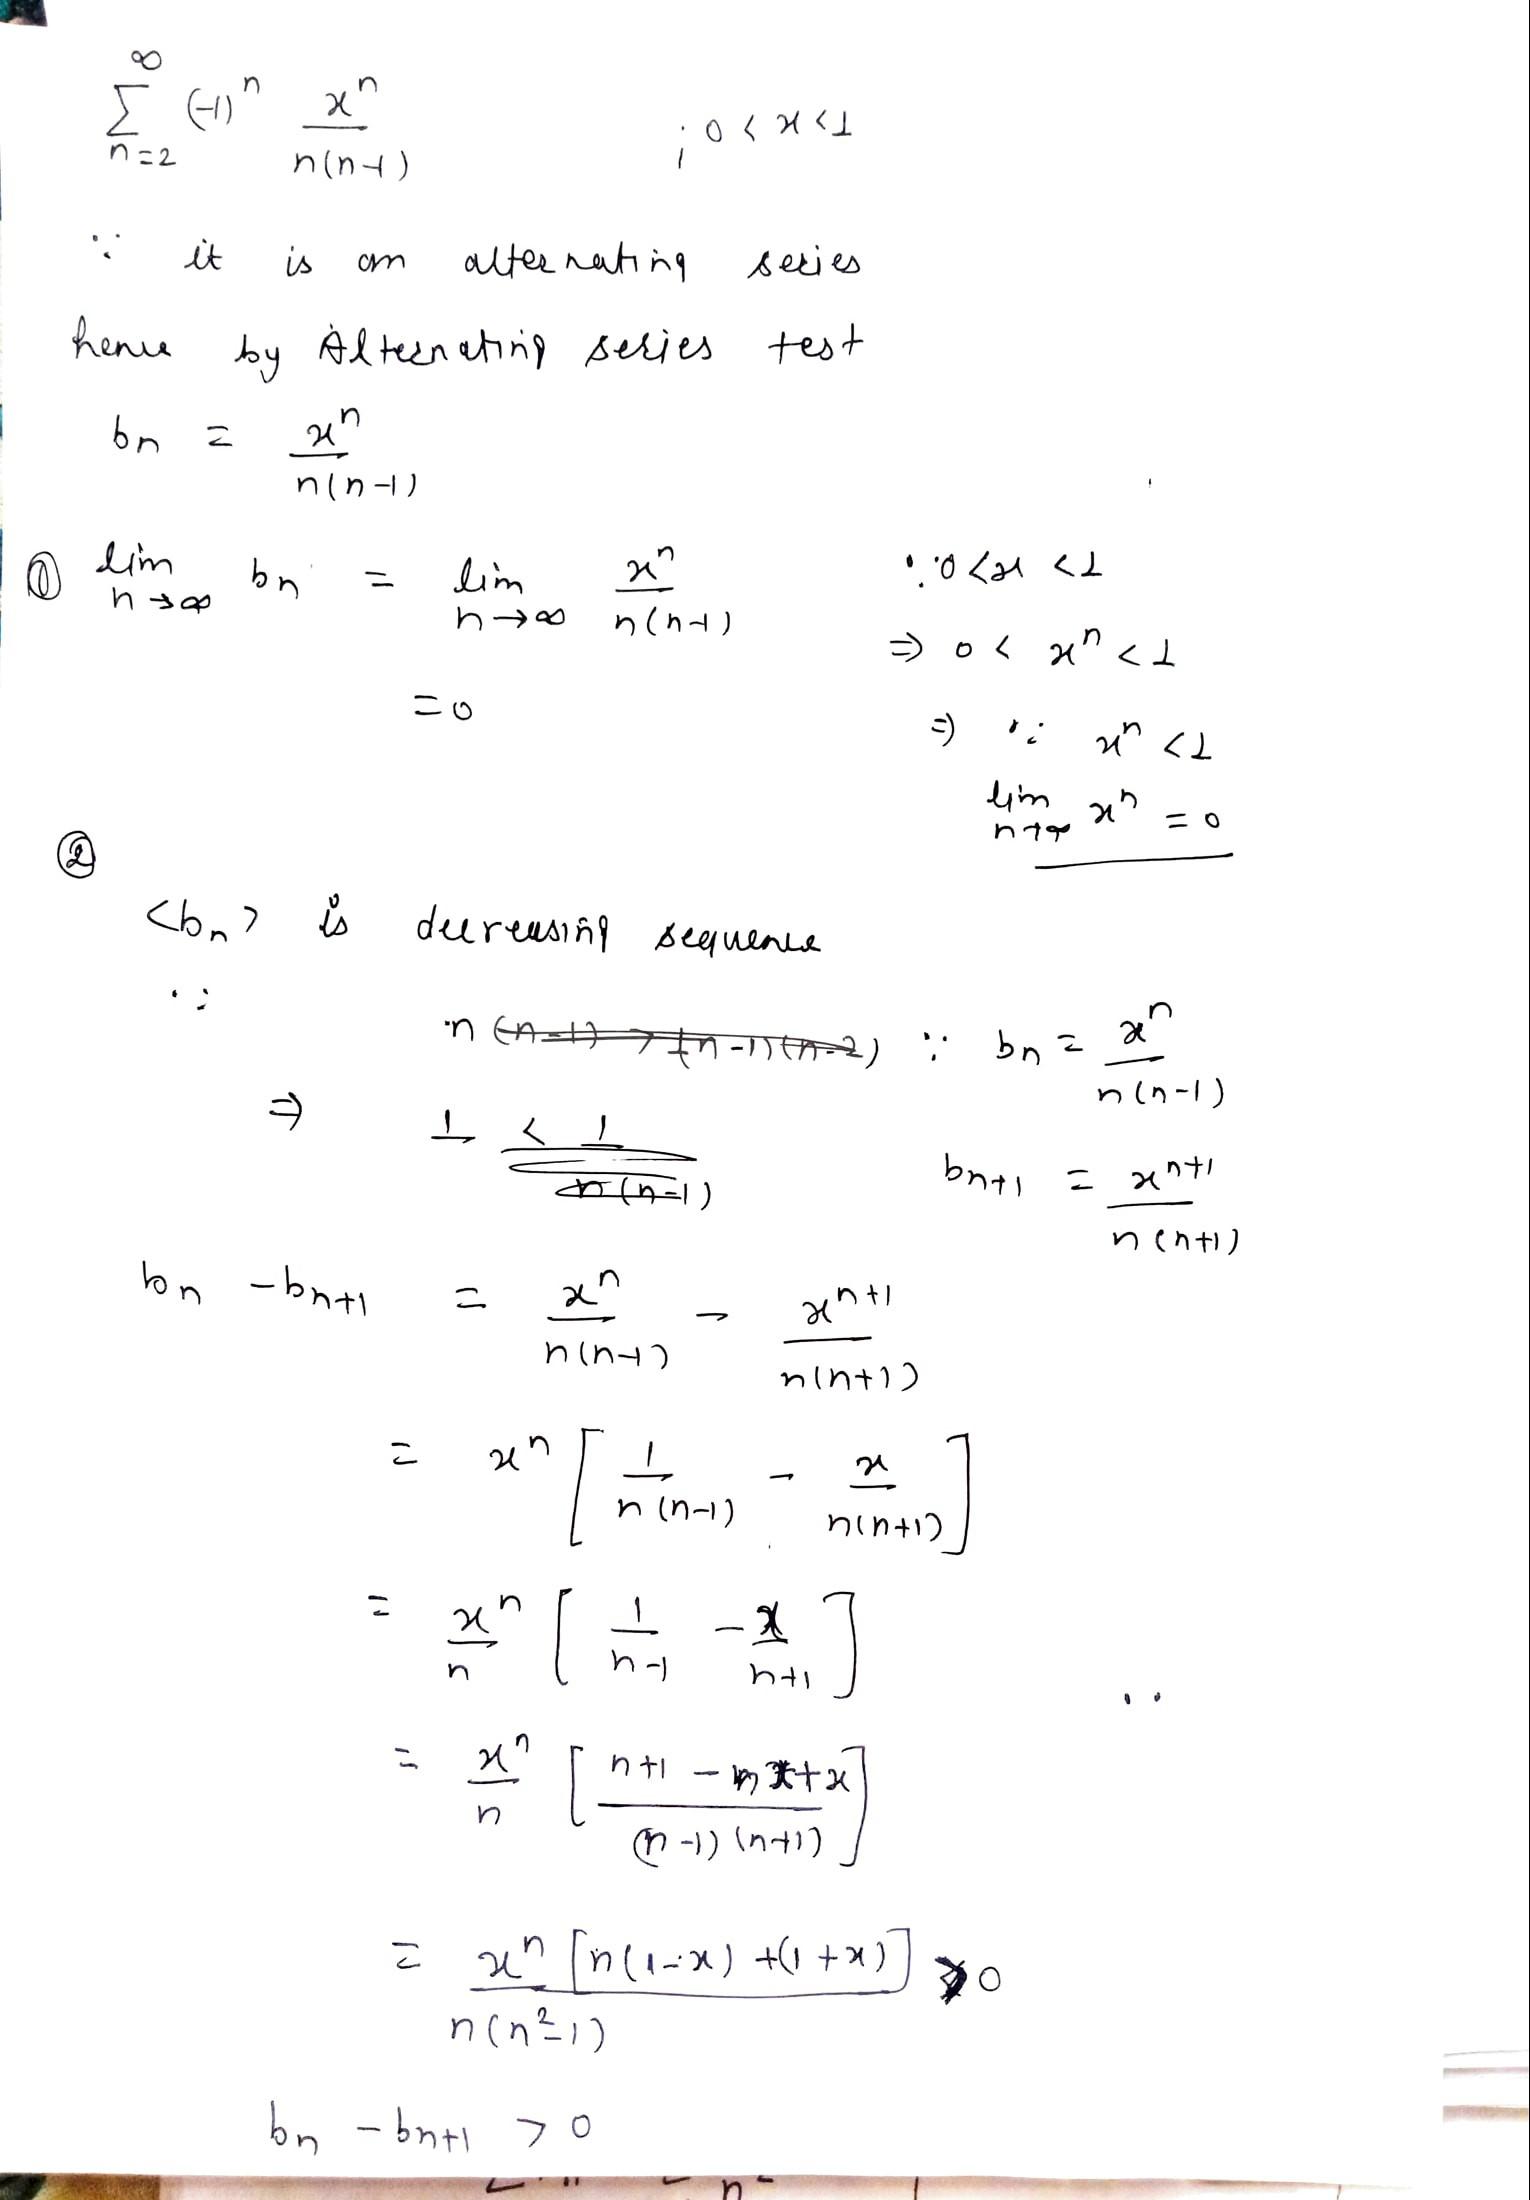 ∞
Σ (-1)ⁿ xⁿ / n(n-1) ; 0 < x < 1
n=2
∵ it is an alternating series
hence by Alternating series test
bn = xⁿ / n(n-1)
① lim n→∞ bn = lim n→∞ xⁿ / n(n-1) ∵ 0 < x < 1
⇒ 0 < xⁿ < 1
= 0
⇒ ∵ xⁿ < 1
lim n→∞ xⁿ = 0
②
<bn> is decreasing sequence
∵
n(n-1) > (n-1)(n-2) ∵ bn = xⁿ / n(n-1)
⇒ 1 < 1 / n(n-1)
bn+1 = xⁿ⁺¹ / n(n+1)
bn - bn+1 = xⁿ / n(n-1) - xⁿ⁺¹ / n(n+1)
= xⁿ [ 1 / n(n-1) - x / n(n+1) ]
= xⁿ / n [ 1 / n-1 - x / n+1 ]
= xⁿ / n [ n+1 - nx + x / (n-1)(n+1) ]
= xⁿ [n(1-x) + (1+x)] / n(n²-1) > 0
bn - bn+1 > 0